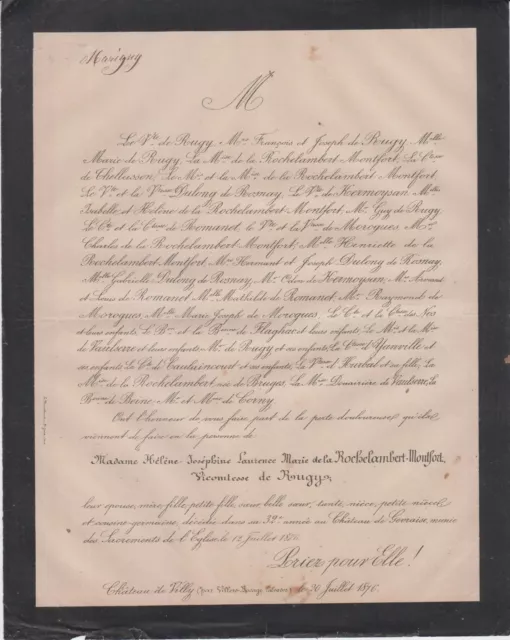 M
Le Vte de Rugy, Mrs François et Joseph de Rugy, Mlle
Marie de Rugy, La Mise de la Rochelambert-Montfort, Le
de Chollusson, Le Mis et la Mise de la Rochelambert Montfort,
Le Vte et la Vtesse Dulong de Rosnay, Le Vte de Kermoysan, Mlles
Isabelle et Hélène de la Rochelambert-Montfort, Mr Guy de Rugy
Le Cte et la Ctesse de Romanet, le Vte et la Vtesse de Morogues, Mr
Charles de la Rochelambert Montfort, Mlle Henriette de la
Rochelambert Montfort, Mrs Hermant et Joseph Dulong de Rosnay,
Mlle Gabrielle Dulong de Rosnay, Mr Odon de Kermoysan, Mrs
et Louis de Romanet, Mlle Mathilde de Romanet, Mr Raymond de
Morogues, Mlle Marie Joseph de Morogues, Le Cte et la Ctesse des
et leurs enfants, Le Bon et la Bonne de Flaghac et leurs enfants, Le Mis et la Mise
de et leurs enfants, Mr de Rugy et ses enfants, La Ctesse d'Yanville et
ses enfants, Le Cte de Caulaincourt et ses enfants, La Vtesse d' et sa fille, La
Mise de la Rochelambert, née de Bruges, La Mise Douairière de Le
de Mr et Mme de Corny.
Ont l'honneur de vous faire part de la perte douloureuse qu'ils
viennent de faire en la personne de
Madame Hélène Joséphine Laurence Marie de la Rochelambert-Montfort,
Vicomtesse de Rugy,
leur épouse, mère, fille, petite fille, sœur, belle sœur, tante, nièce, petite nièce
et cousine germaine, décédée dans sa 32e année au Château de munie
des Sacrements de l'Église, le 12 Juillet
Priez pour Elle!
Château de (par 20 Juillet 1876.